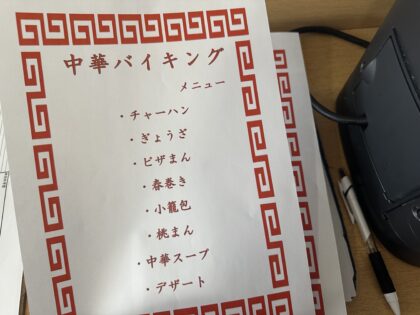 中華バイキング
メニュー
・チャーハン
・ぎょうざ
・ピザまん
・春巻き
・小籠包
・桃まん
・中華スープ
・デザート